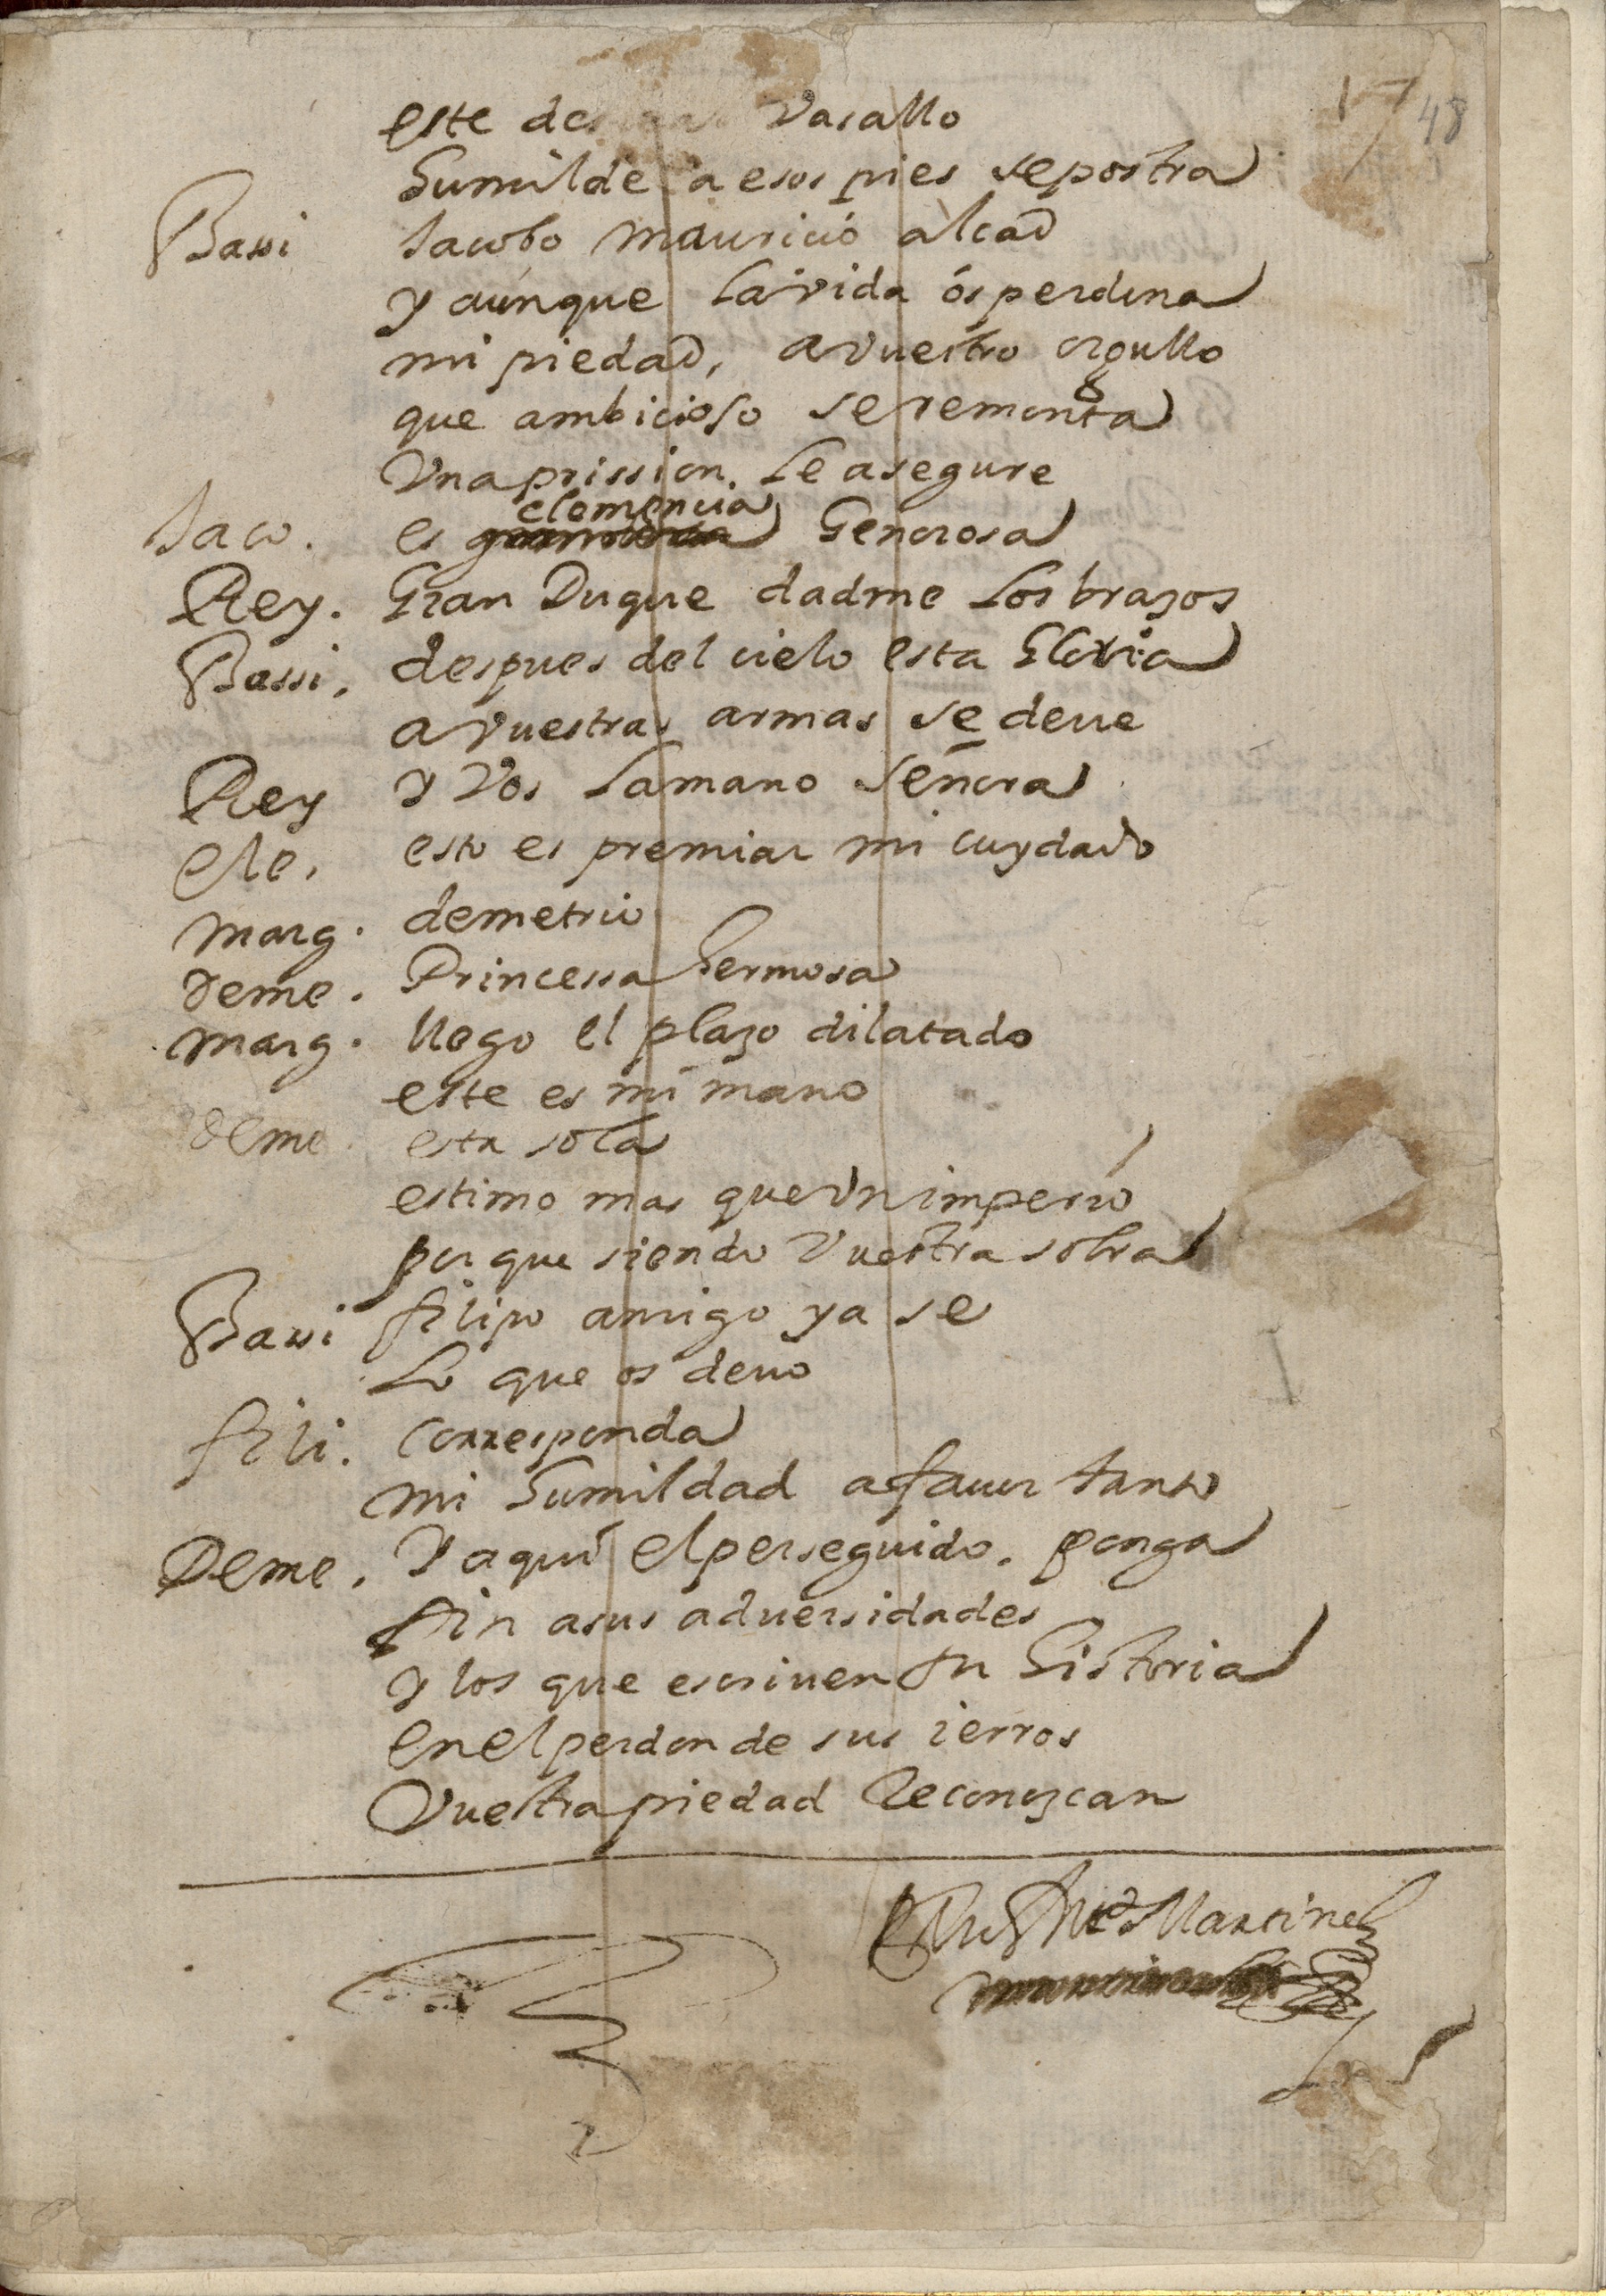 17 48
este des Vasallo
humilde a esos pies se postra
Bassi Jacobo Mauricio alçad
y aunque la vida os perdona
mi piedad, a vuestro orgullo
que ambicioso se remonta
Una prission le asegure
clemencia
Jaco. es Generosa
Rey. Gran Duque dadme los brazos
Bassi. despues del cielo esta Gloria
a vuestras armas se deue
Rey y Vos la mano señora
ele. esto es premiar mi cuydado
Marg. demetrio
Deme. Princessa hermosa
Marg. llego el plazo dilatado
este es mi mano
deme esta sola
estimo mas que Un imperio
por que siendo Vuestra sobra
Bassi filipo amigo ya se
Lo que os deuo
fili. Corresponda
mi humildad a fauor tanto
Deme. Y aqui el perseguido. ponga
fin a sus aduersidades
y los que escriuen su historia
en el perdon de sus ierros
Vuestra piedad Reconozcan
Martinez